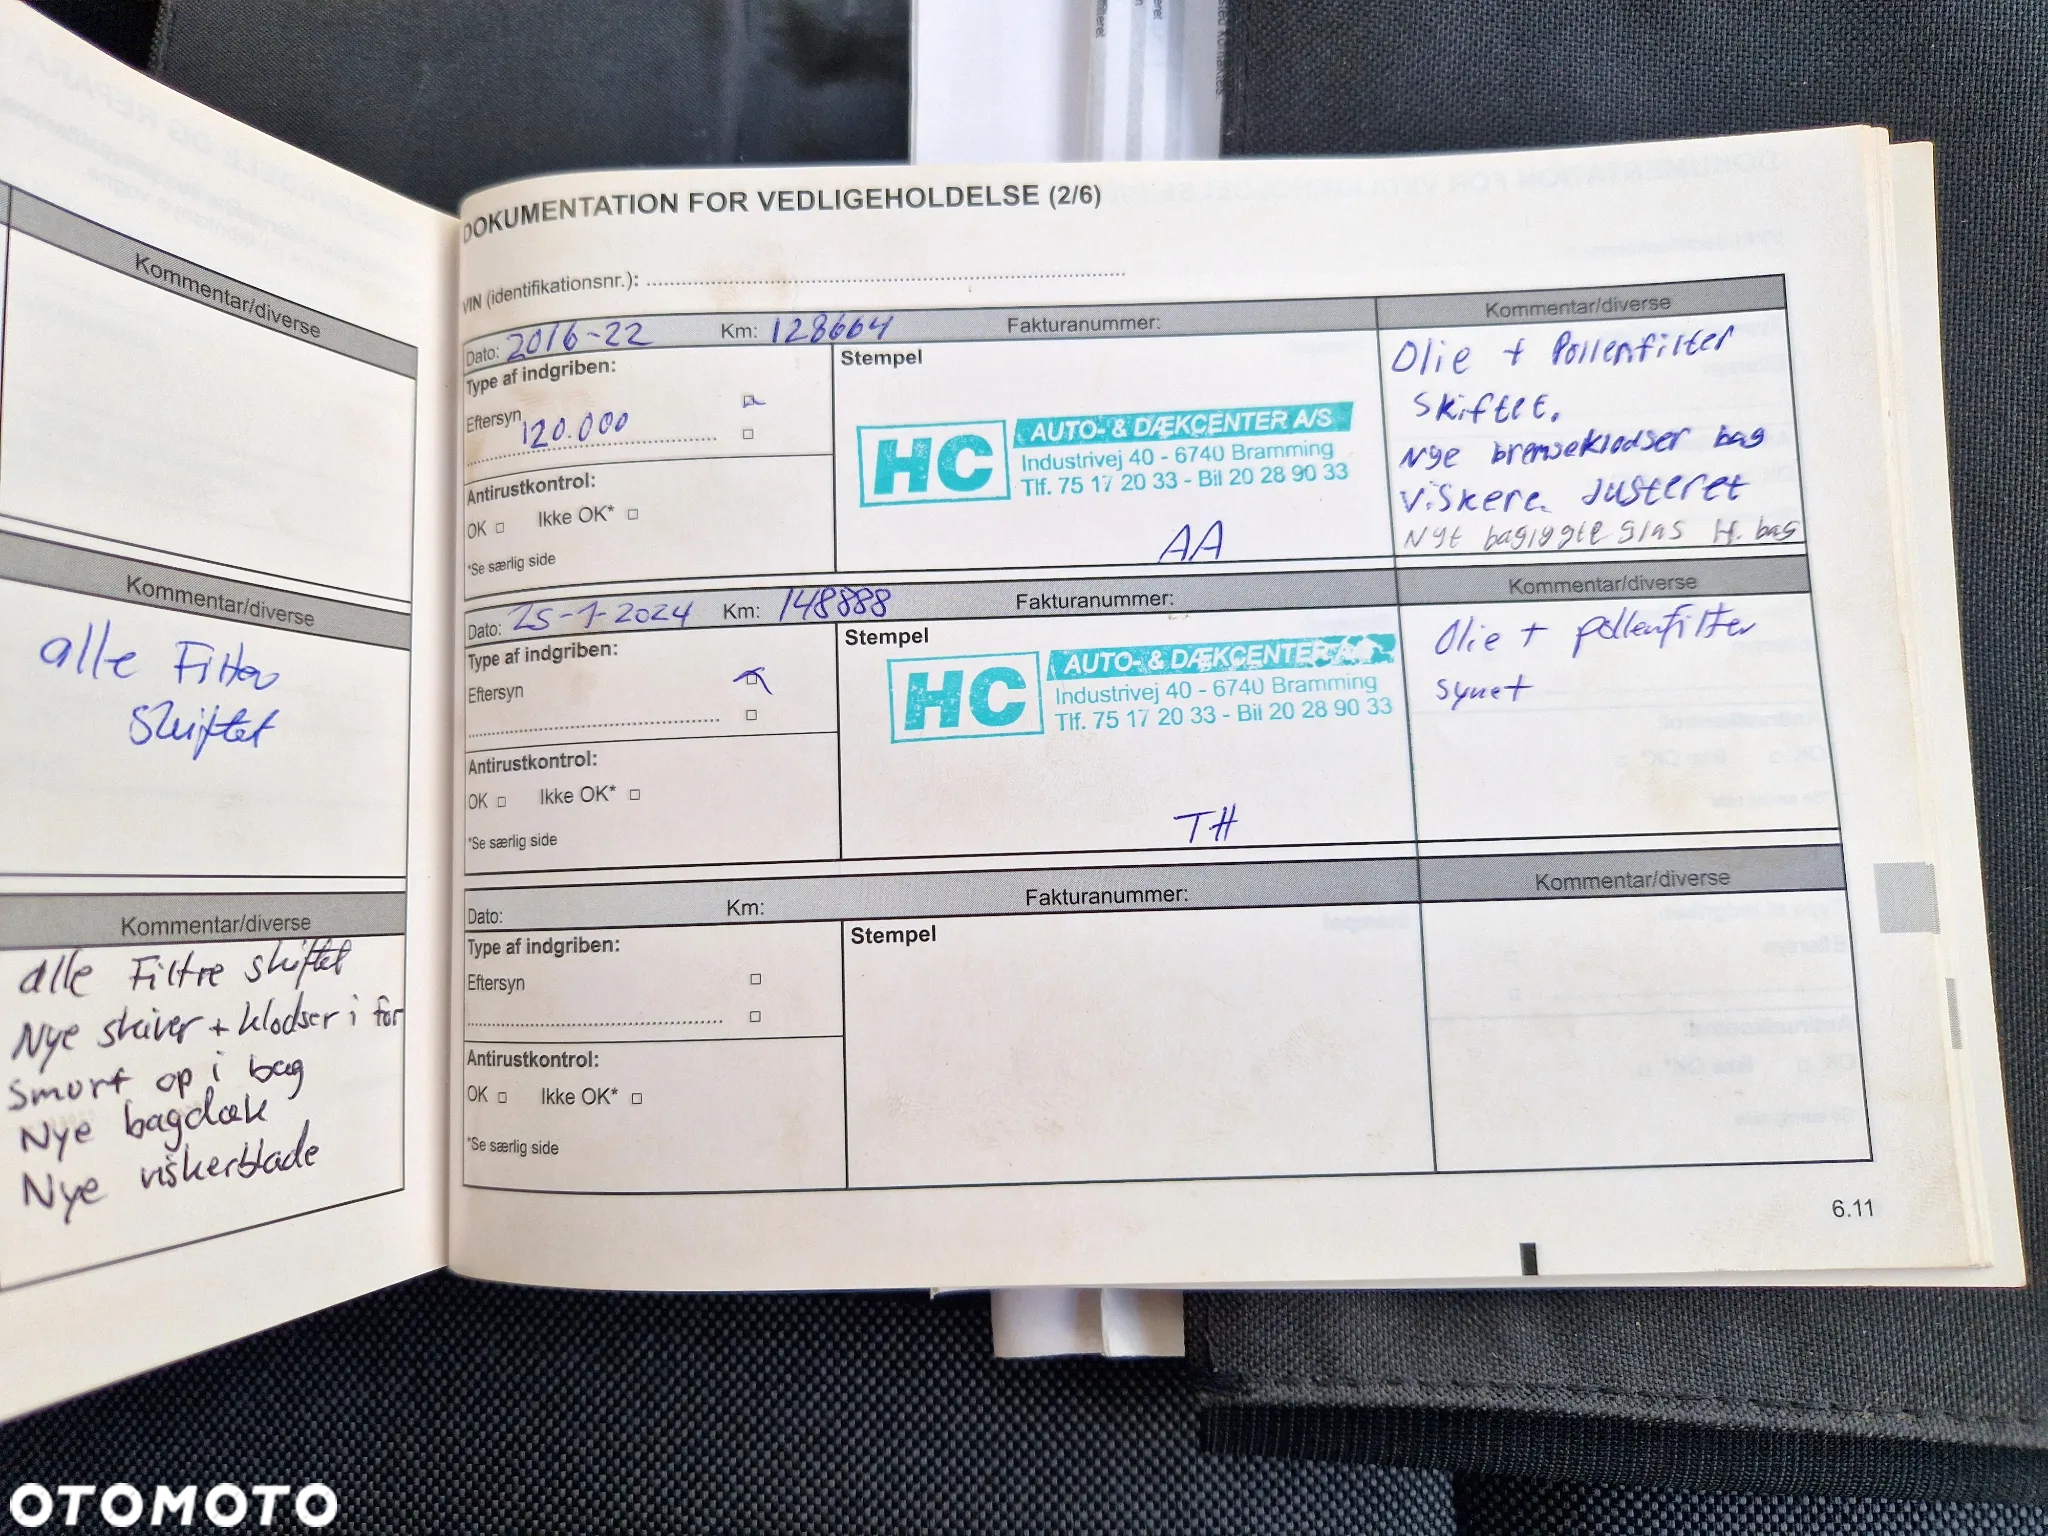 Kommentar/diverse
Kommentar/diverse
alle Filter
skiftet
Kommentar/diverse
alle Filtre skiftet
Nye skiver + klodser i for
Smurt op i bag
Nye bagdæk
Nye viskerblade
DOKUMENTATION FOR VEDLIGEHOLDELSE (2/6)
VIN (identifikationsnr.):
Dato: 2016-22 Km: 128664 Fakturanummer: Kommentar/diverse
Type af indgriben:
Eftersyn
120.000
Antirustkontrol:
OK □ Ikke OK* □
*Se særlig side
Stempel
HC AUTO- & DÆKCENTER A/S
Industrivej 40 - 6740 Bramming
Tlf. 75 17 20 33 - Bil 20 28 90 33
AA
Olie + Pollenfilter
skiftet.
Nye bremseklodser bag
Viskere Justeret
Nyt baglygte glas H. bag
Dato: 25-1-2024 Km: 148888 Fakturanummer: Kommentar/diverse
Type af indgriben:
Eftersyn
Antirustkontrol:
OK □ Ikke OK* □
*Se særlig side
Stempel
HC AUTO- & DÆKCENTER A/S
Industrivej 40 - 6740 Bramming
Tlf. 75 17 20 33 - Bil 20 28 90 33
TH
Olie + pollenfilter
synet
Dato: Km: Fakturanummer: Kommentar/diverse
Type af indgriben:
Eftersyn □
□
Antirustkontrol:
OK □ Ikke OK* □
*Se særlig side
Stempel
6.11
OTOMOTO